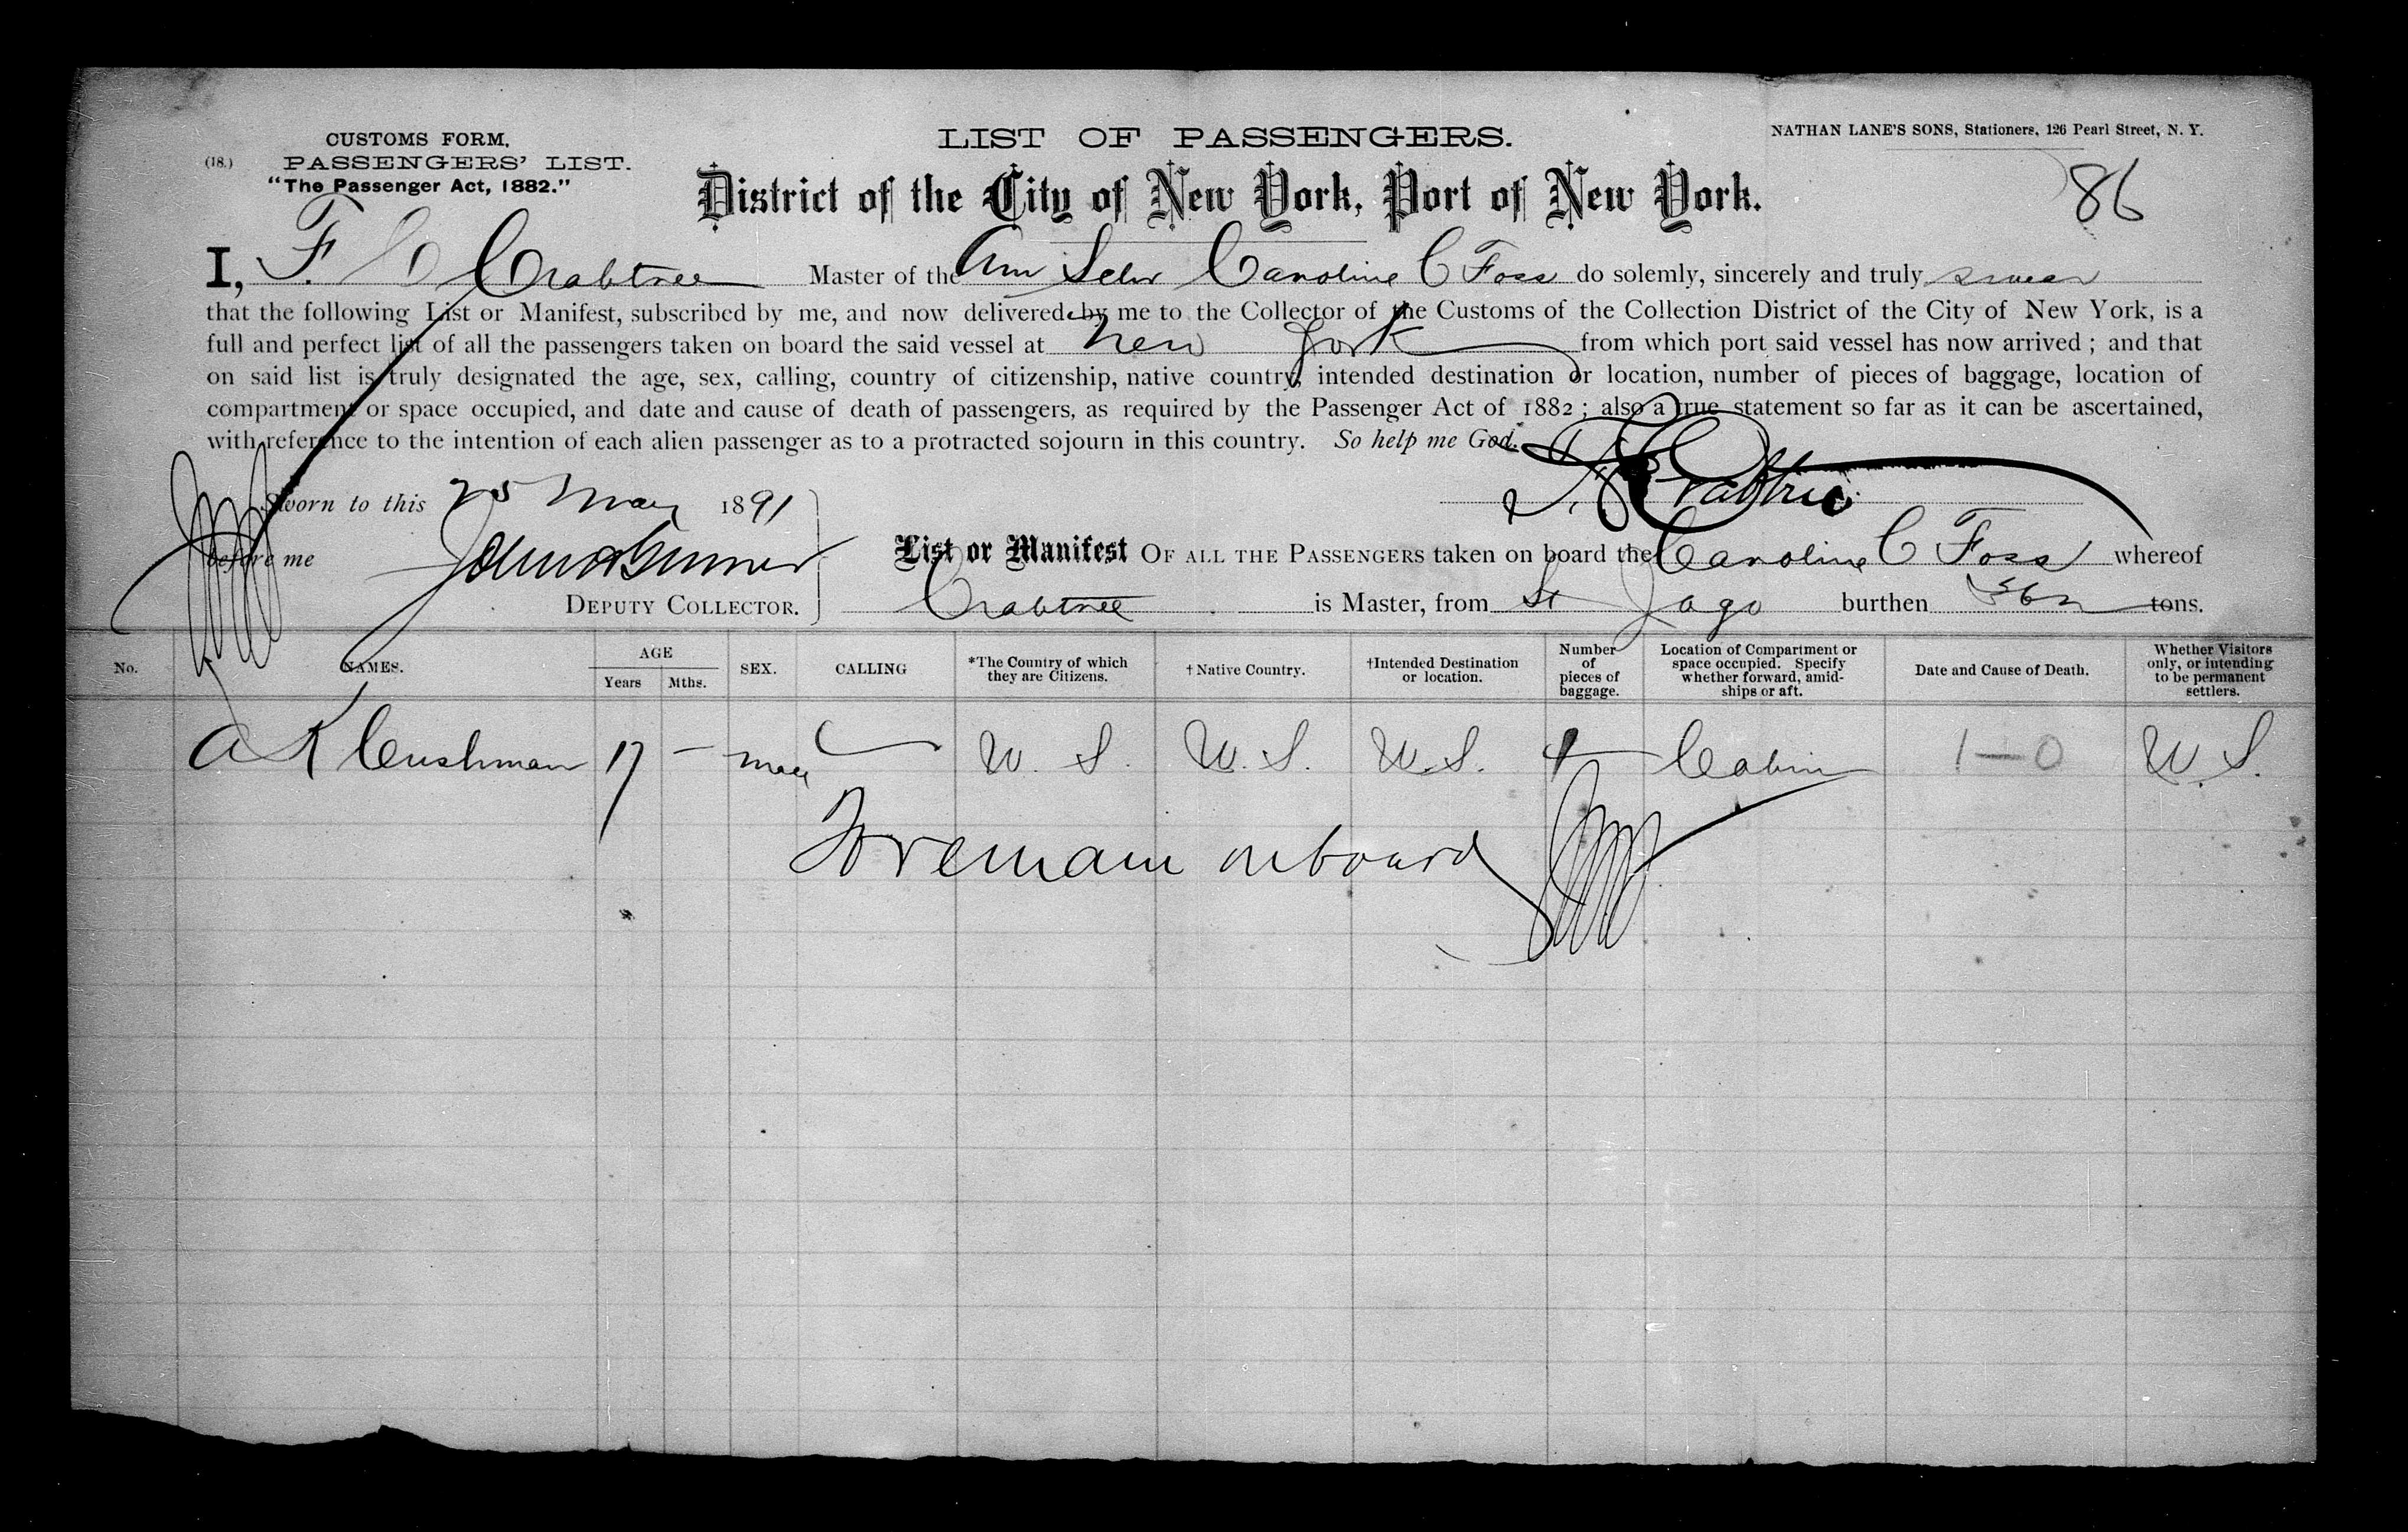 CUSTOMS FORM.
(18.) PASSENGERS' LIST.
"The Passenger Act, 1882."
LIST OF PASSENGERS.
NATHAN LANE'S SONS, Stationers, 126 Pearl Street, N. Y.
District of the City of New York, Port of New York.
86
I, F. Crabtree Master of the Am Schr Caroline C Foss do solemly, sincerely and truly swear
that the following List or Manifest, subscribed by me, and now delivered by me to the Collector of the Customs of the Collection District of the City of New York, is a
full and perfect list of all the passengers taken on board the said vessel at New York from which port said vessel has now arrived ; and that
on said list is truly designated the age, sex, calling, country of citizenship, native country, intended destination or location, number of pieces of baggage, location of
compartment or space occupied, and date and cause of death of passengers, as required by the Passenger Act of 1882 ; also a true statement so far as it can be ascertained,
with reference to the intention of each alien passenger as to a protracted sojourn in this country. So help me God.
Crabtree
Sworn to this 25 May 1891
before me
DEPUTY COLLECTOR.
List or Manifest OF ALL THE PASSENGERS taken on board the Caroline C Foss whereof
Crabtree is Master, from St Jago burthen tons.
No. NAMES. AGE Years Mths. SEX. CALLING *The Country of which they are Citizens. †Native Country. †Intended Destination or location. Number of pieces of baggage. Location of Compartment or space occupied. Specify whether forward, amid-ships or aft. Date and Cause of Death. Whether Visitors only, or intending to be permanent settlers.
A K Cushman 17 — male U. S. U. S. U. S. Cabin 1—0 U. S.
To remain on board